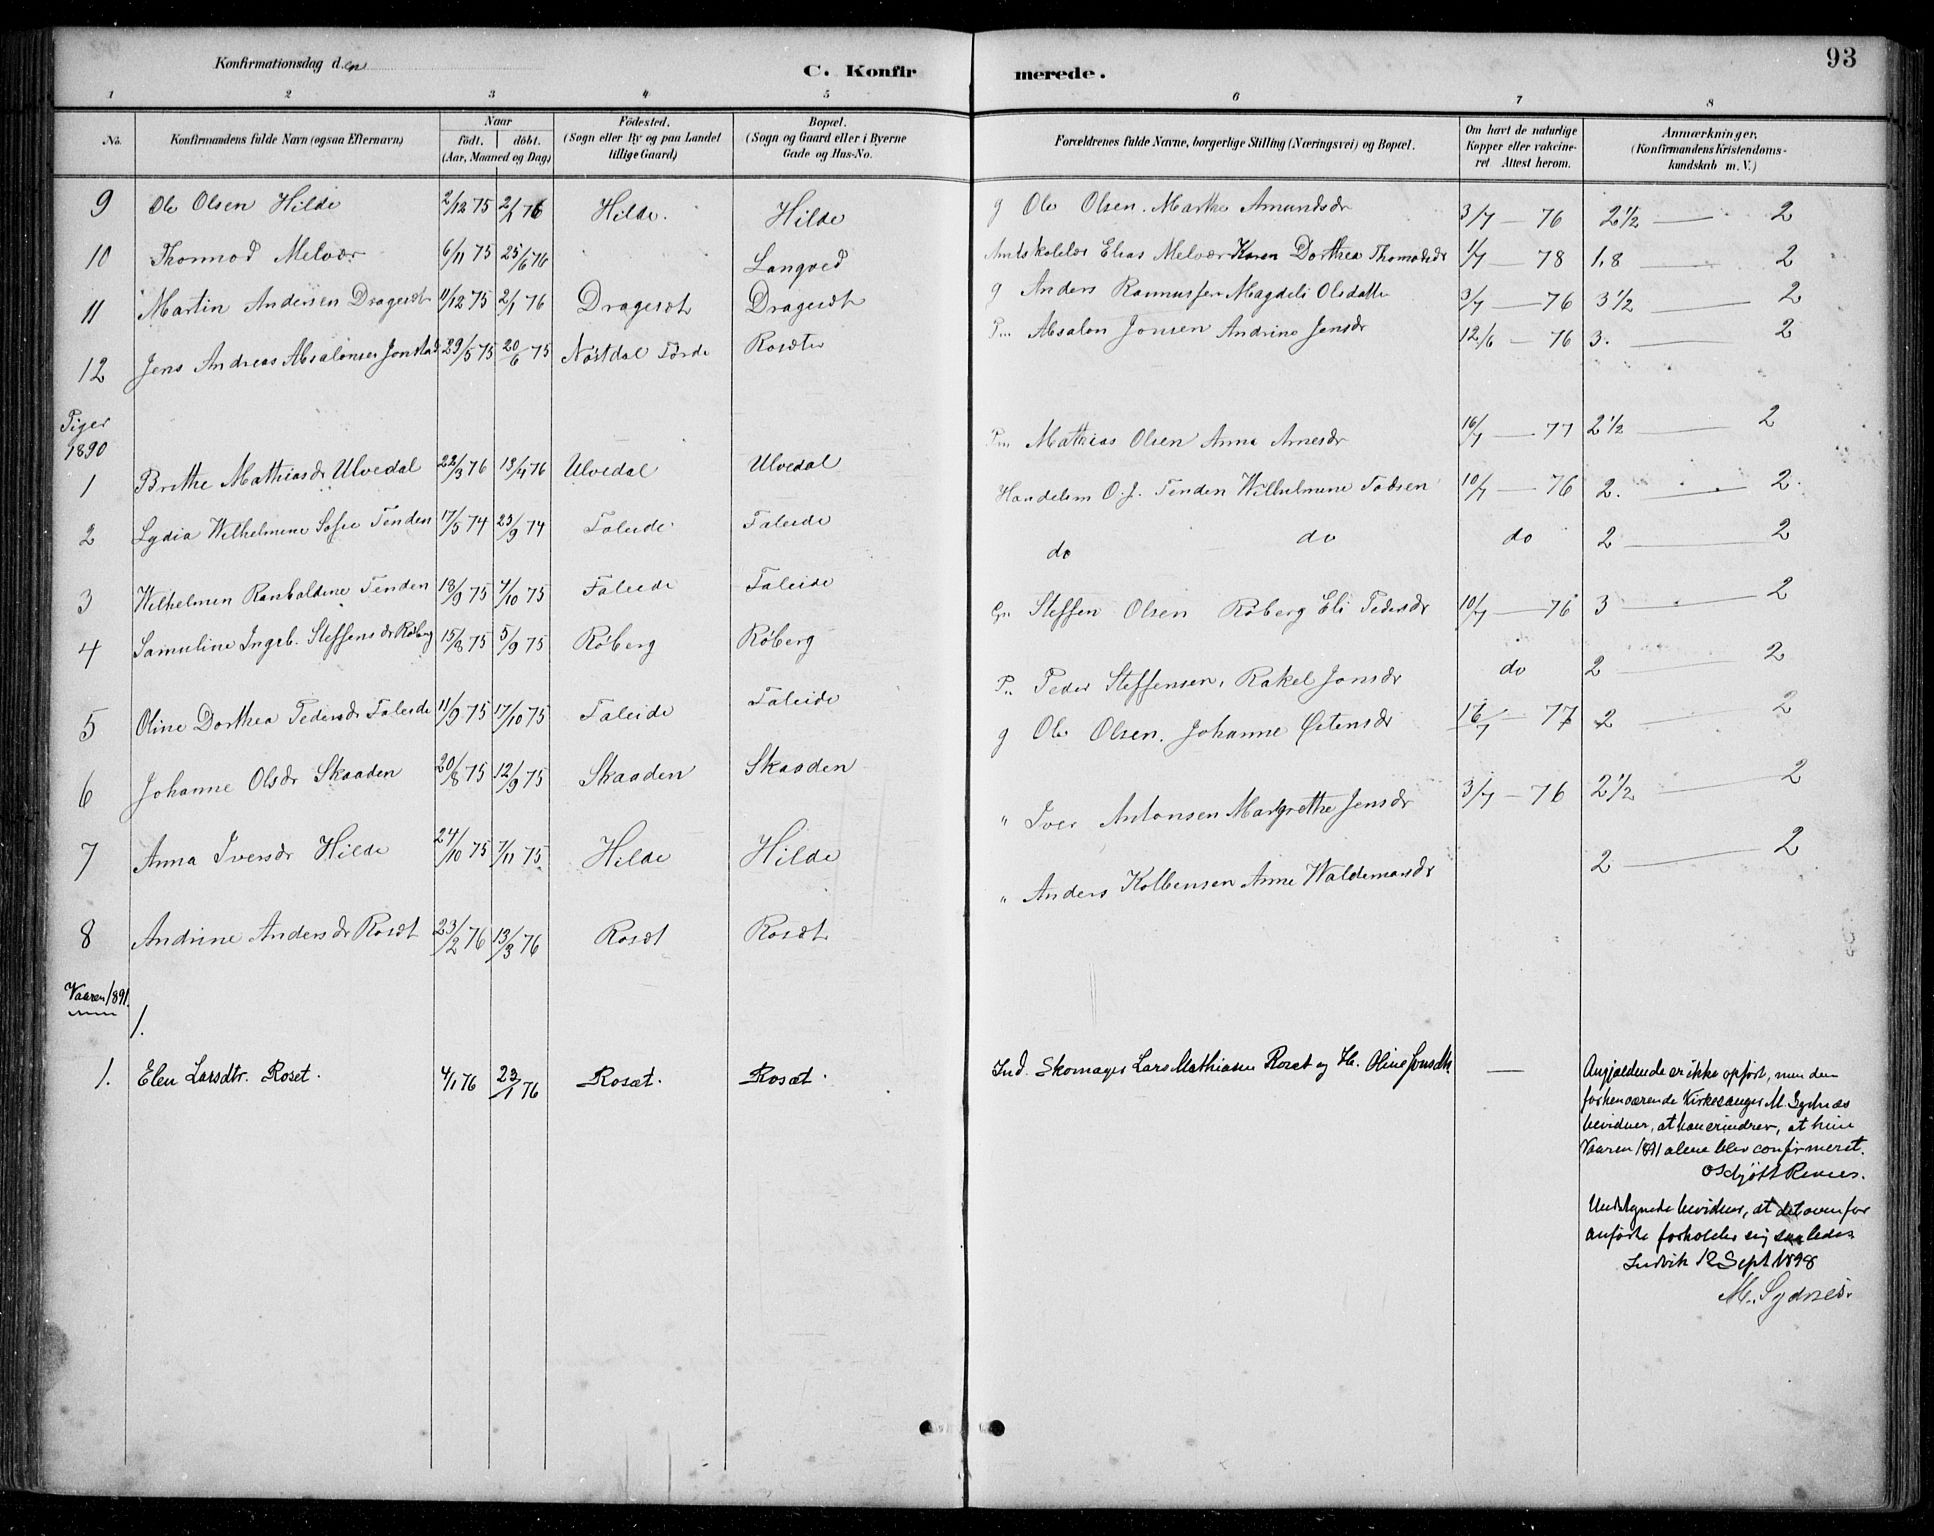 93
Konfirmationsdag den
C. Konfirmerede.
1 2 3 4 5 6 7 8
No. Konfirmandens fulde Navn (ogsaa Efternavn) Naar födt. döbt. (Aar, Maaned og Dag) Födested. (Sogn eller By og paa Landet tillige Gaard) Bopæl. (Sogn og Gaard eller i Byerne Gade og Hus-No. Forældrenes fulde Navne, borgerlige Stilling (Næringsvei) og Bopæl. Om havt de naturlige Kopper eller vakcineret Attest herom. Anmærkninger, (Konfirmandens Kristendomskundskab m. V.)
9 Ole Olsen Hilde 2/12 75 2/1 76 Hilde. Hilde g Ole Olsen. Marthe Amundsdr 3/7 — 76 2 1/2 — 2
10 Thormod Melvær 6/11 75 25/6 76 Langved Amtskolelær Elias Melvær Karen Dorthea Thomasdr 1/7 — 78 1,8 2
11 Martin Andersen Dragesæt 11/12 75 2/1 76 Dragesæt Dragesæt g Anders Rasmussen Magdeli Olsdatter 3/7 — 76 3 1/2 — 2
12 Jens Andreas Absalonsen Jonstad 29/5 75 20/6 75 Nøstdal Førde Rosæter P... Absalon Jonsen Andrine Jensdr 12/6 — 76 3. — 2
Piger
1890
1 Brithe Mathiasdr Ulvedal 22/3 76 13/4 76 Ulvedal Ulvedal P... Mathias Olsen Anna Arnesdr 16/7 — 77 2 1/2 — 2
2 Lydia Wilhelmine Sofie Tenden 17/5 74 23/9 74 Faleide Faleide Handelsm O. J. Tenden Wilhelmine Fadsen 10/7 — 76 2. — 2.
3 Wilhelmen Ranbaldine Tenden 18/9 75 7/10 75 Faleide Faleide do do do 2 — 2
4 Samuline Ingeb. Steffensdr Røberg 15/8 75 5/9 75 Røberg Røberg Steffen Olsen Røberg Eli Pedersdr 10/7 — 76 3 — 2
5 Oline Dorthea Pedersdr Faleide 11/9 75 17/10 75 Faleide Faleide P.. Peder Steffensen, Rakel Jonsdr do 2 — 2
6 Johanne Olsdr Skaaden 20/8 75 12/9 75 Skaaden Skaaden g Ole Olsen. Johanne Østensdr 16/7 — 77 2 — 2
7 Anna Iversdr Hilde 24/10 75 7/11 75 Hilde Hilde " Iver Antonsen Margrethe Jensdr 3/7 — 76 2 1/2 — 2
8 Andrine Andersdr Rosæt 23/2 76 13/3 76 Rosæt Rosæt " Anders Kolbensen Anne Waldemarsdr 2 — 2
Vaaren 1891.
1.
1. Elen Larsdtr. Roset. 4/1 76 23/1 76 Rosæt. Rosæt. Ind. Skomager Lars Mathiasen Roset og H. Oline Jonsdtr. —
Angjældende er ikke opført, men den
forhenværende Kirkesanger M. Sydnæs
bevidner, at han erindrer, at hun
Vaaren 1891 alene blev confirmeret.
Undtegnede bevidner, at det ovenfor
anførte forholder sig saaledes
Indvik 12 Sept 1898
M. Sydnes.